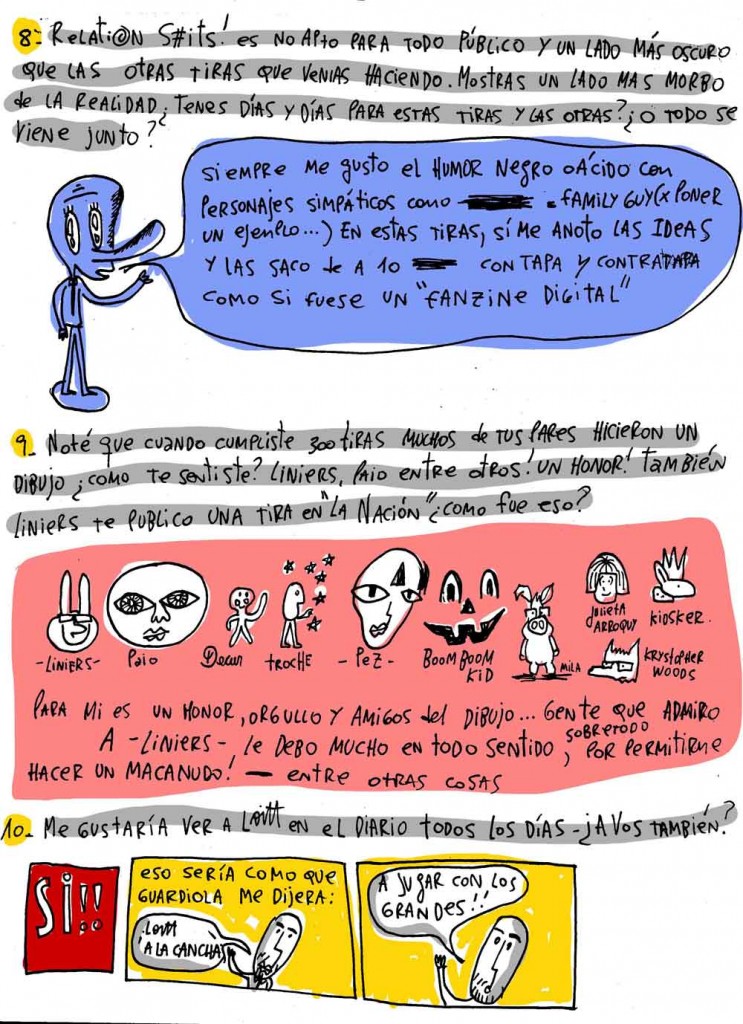 8- Relati@n S#its! es no apto para todo público y un lado más oscuro
que las otras tiras que venias haciendo. Mostras un lado mas morbo
de la realidad ¿tenes días y días para estas tiras y las otras? ¿o todo se
viene junto?
Siempre me gusto el humor negro o ácido con
personajes simpáticos como family guy (x poner
un ejemplo...) En estas tiras, sí me anoto las ideas
y las saco de a 10 con tapa y contratapa
como si fuese un "fanzine digital"
9- Noté que cuando cumpliste 300 tiras muchos de tus pares hicieron un
dibujo ¿como te sentiste? Liniers, Paio entre otros! un honor! también
Liniers te publico una tira en "La Nación" ¿como fue eso?
-Liniers-
Paio
Decur
Troche
-Pez-
Boom Boom
Kid
Mila
Julieta
Arroquy
Kiosker.
Krystopher
Woods
Para mi es un honor, orgullo y amigos del dibujo... gente que admiro
A -Liniers- le debo mucho en todo sentido, sobretodo por permitirme
hacer un macanudo! - entre otras cosas
10- Me gustaría ver a en el diario todos los días - ¿A vos también?
Si!!
eso sería como que
Guardiola me dijera:
a la cancha
A jugar con los
grandes!!